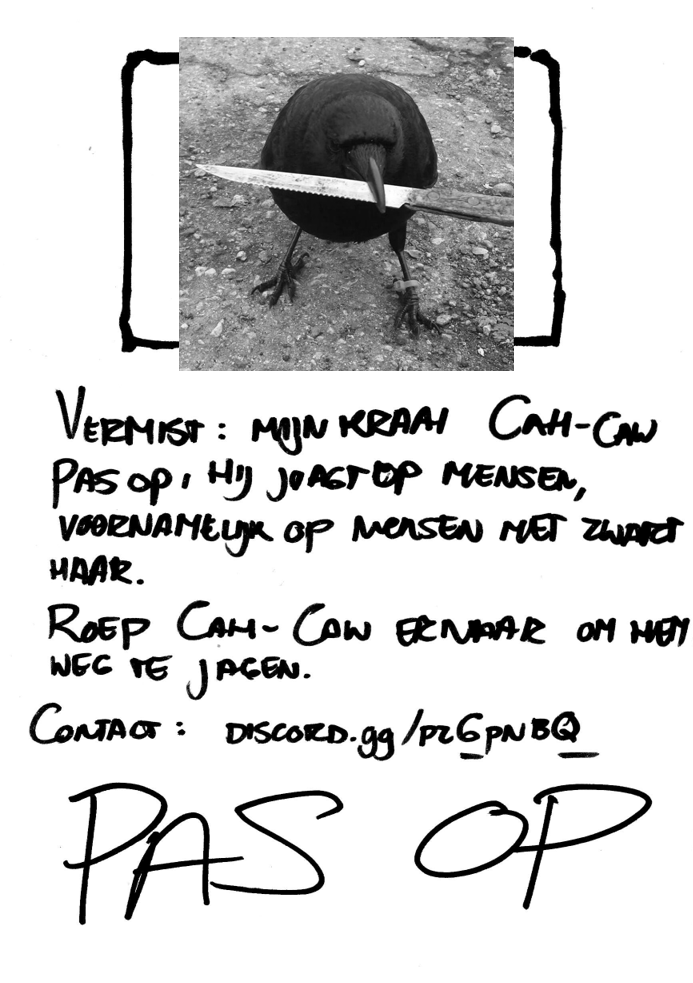 VERMIST: MIJN KRAAI CAH-CAW
PAS OP, HIJ JAAGT OP MENSEN,
VOORNAMELIJK OP MENSEN MET ZWART
HAAR.
ROEP CAH-CAW ERNAAR OM HEM
WEG TE JAGEN.
CONTACT: DISCORD.gg/pzGpNBQ
PAS OP